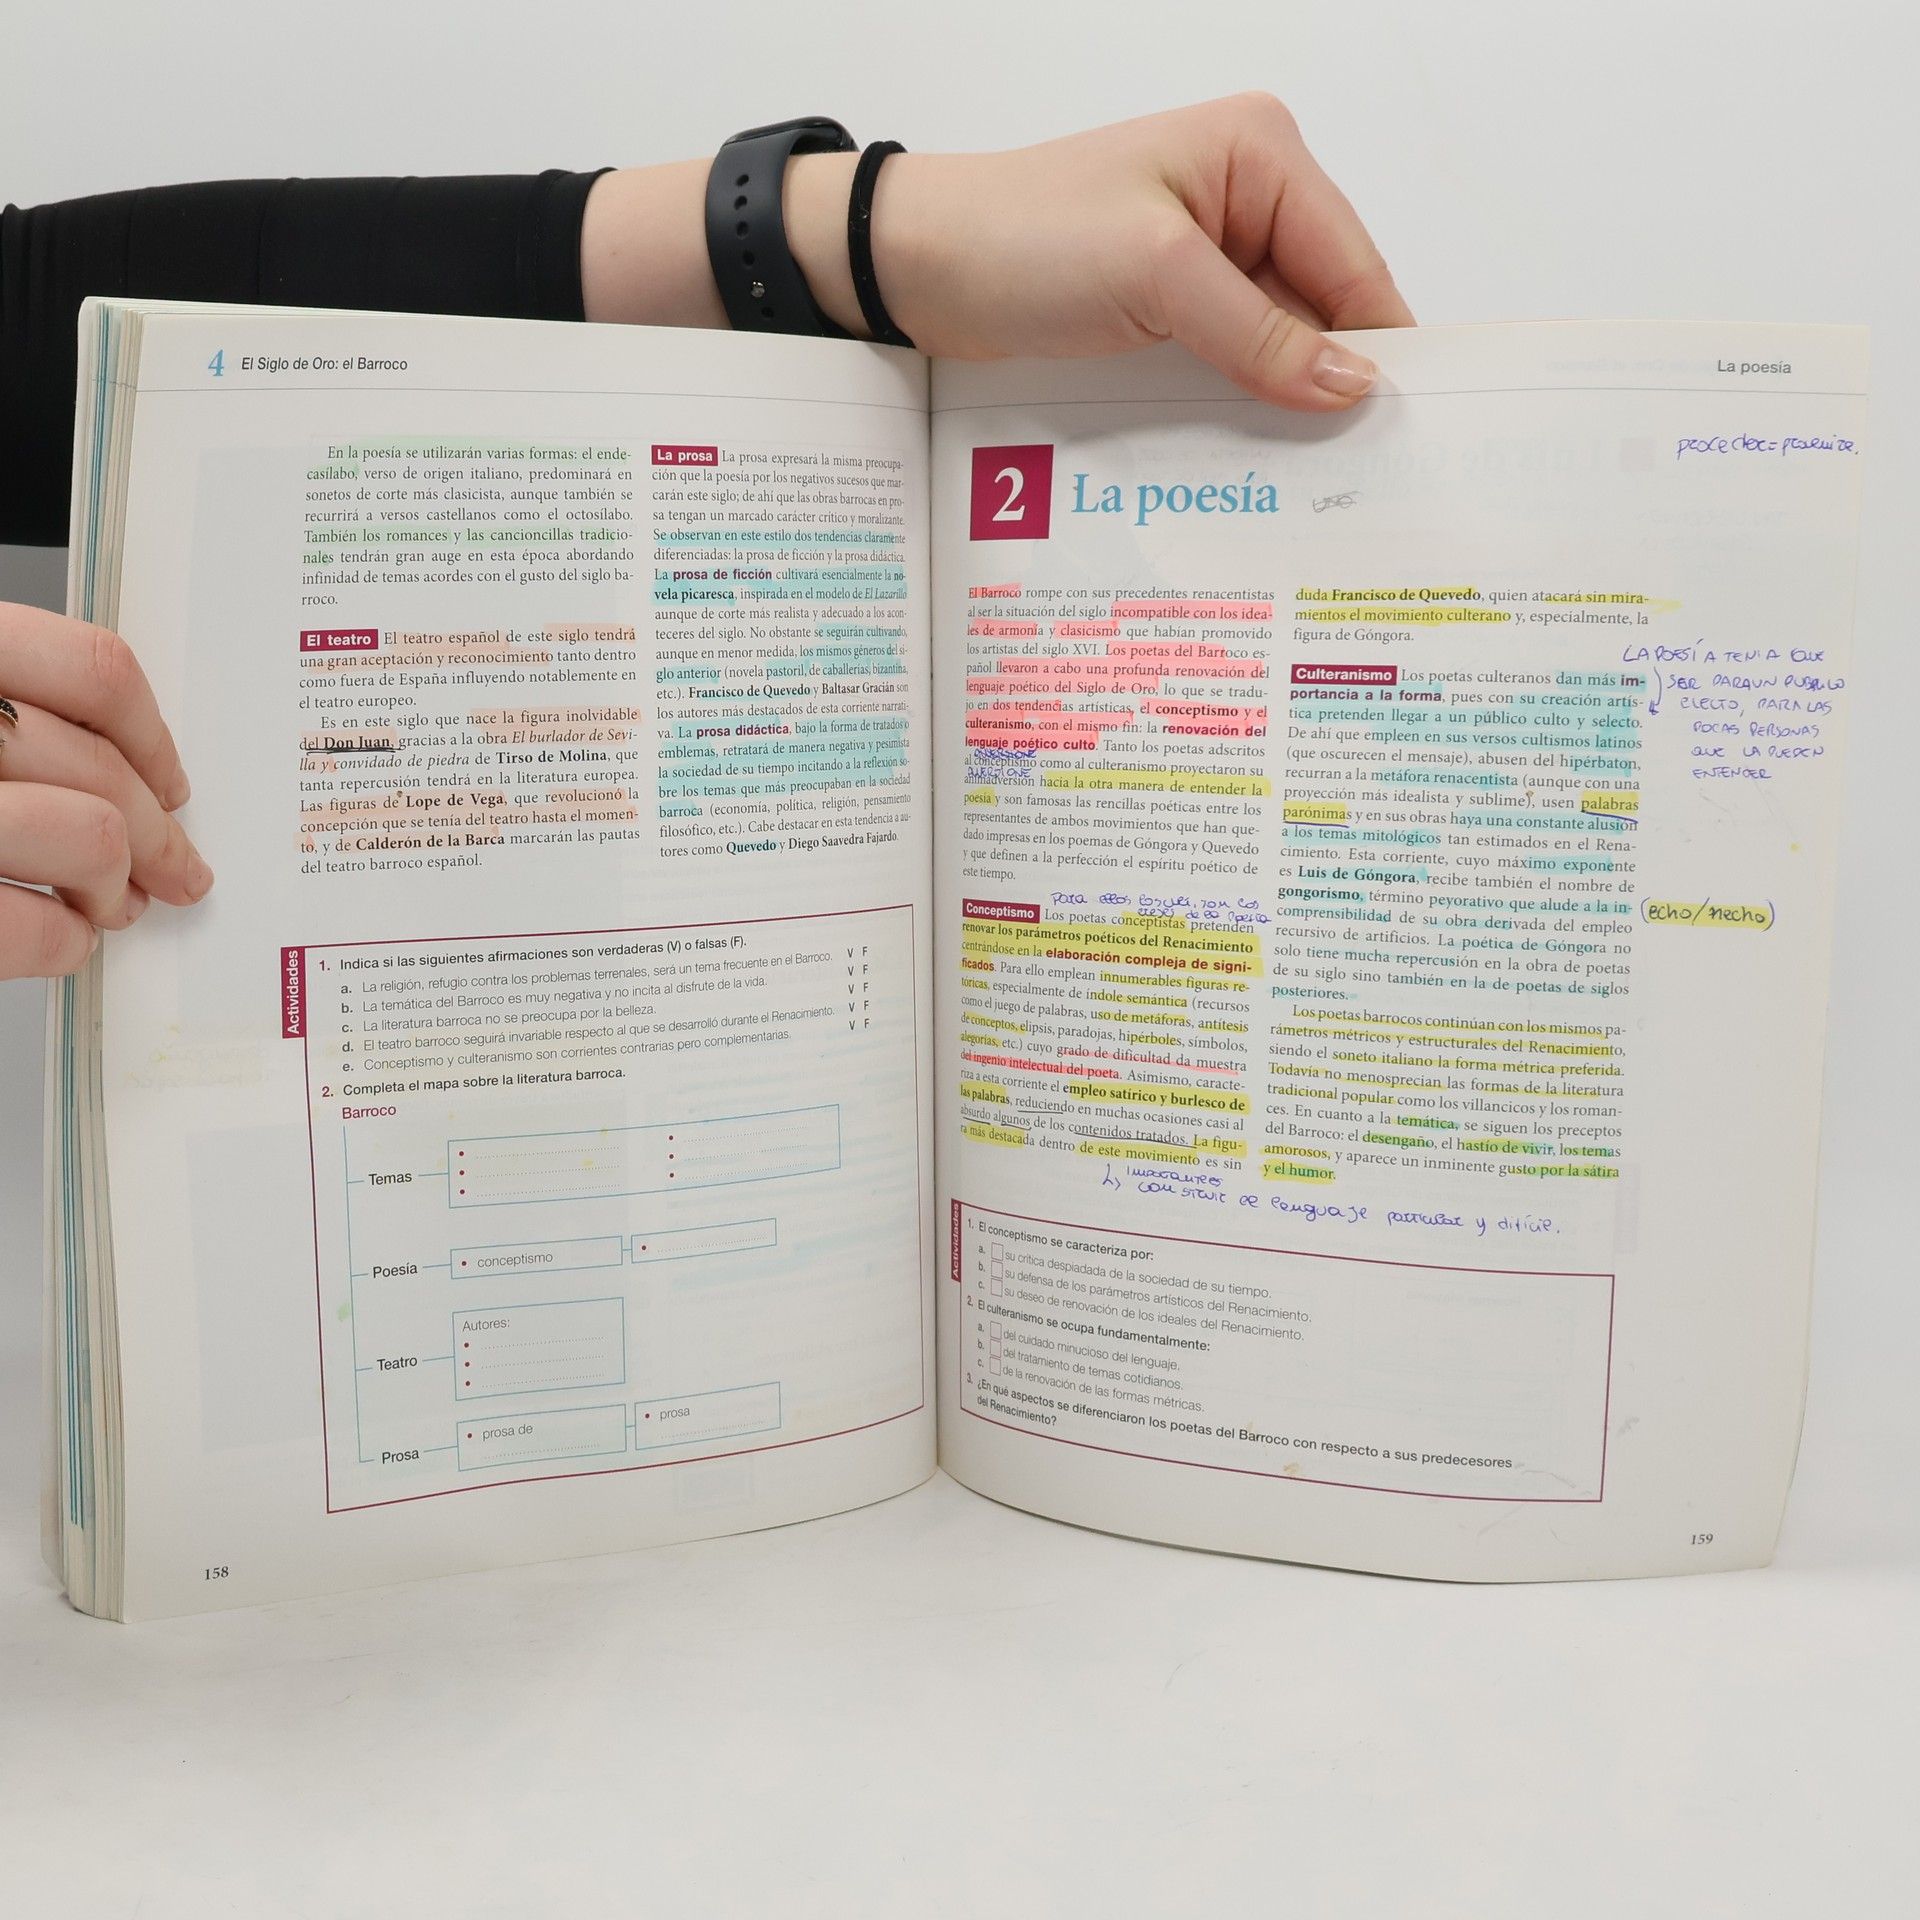 4 El Siglo de Oro: el Barroco
En la poesía se utilizarán varias formas: el ende-
casílabo, verso de origen italiano, predominará en
sonetos de corte más clasicista, aunque también se
recurrirá a versos castellanos como el octosílabo.
También los romances y las cancioncillas tradicio-
nales tendrán gran auge en esta época abordando
infinidad de temas acordes con el gusto del siglo ba-
rroco.
El teatro El teatro español de este siglo tendrá
una gran aceptación y reconocimiento tanto dentro
como fuera de España influyendo notablemente en
el teatro europeo.
Es en este siglo que nace la figura inolvidable
del Don Juan, gracias a la obra El burlador de Sevi-
lla y convidado de piedra de Tirso de Molina, que
tanta repercusión tendrá en la literatura europea.
Las figuras de Lope de Vega, que revolucionó la
concepción que se tenía del teatro hasta el momen-
to, y de Calderón de la Barca marcarán las pautas
del teatro barroco español.
La prosa La prosa expresará la misma preocupa-
ción que la poesía por los negativos sucesos que mar-
carán este siglo; de ahí que las obras barrocas en pro-
sa tengan un marcado carácter crítico y moralizante.
Se observan en este estilo dos tendencias claramente
diferenciadas: la prosa de ficción y la prosa didáctica.
La prosa de ficción cultivará esencialmente la no-
vela picaresca, inspirada en el modelo de El Lazarillo
aunque de corte más realista y adecuado a los acon-
teceres del siglo. No obstante se seguirán cultivando,
aunque en menor medida, los mismos géneros del si-
glo anterior (novela pastoril, de caballerías, bizantina,
etc.). Francisco de Quevedo y Baltasar Gracián son
los autores más destacados de esta corriente narrati-
va. La prosa didáctica, bajo la forma de tratados o
emblemas, retratará de manera negativa y pesimista
la sociedad de su tiempo incitando a la reflexión so-
bre los temas que más preocupaban en la sociedad
barroca (economía, política, religión, pensamiento
filosófico, etc.). Cabe destacar en esta tendencia a au-
tores como Quevedo y Diego Saavedra Fajardo.
Actividades
1. Indica si las siguientes afirmaciones son verdaderas (V) o falsas (F).
a. La religión, refugio contra los problemas terrenales, será un tema frecuente en el Barroco. V F
b. La temática del Barroco es muy negativa y no incita al disfrute de la vida. V F
c. La literatura barroca no se preocupa por la belleza. V F
d. El teatro barroco seguirá invariable respecto al que se desarrolló durante el Renacimiento. V F
e. Conceptismo y culteranismo son corrientes contrarias pero complementarias. V F
2. Completa el mapa sobre la literatura barroca.
Barroco
Temas
Poesía
• conceptismo
Teatro
Autores:
Prosa
• prosa de
• prosa
158
La poesía
2 La poesía
El Barroco rompe con sus precedentes renacentistas
al ser la situación del siglo incompatible con los idea-
les de armonía y clasicismo que habían promovido
los artistas del siglo XVI. Los poetas del Barroco es-
pañol llevaron a cabo una profunda renovación del
lenguaje poético del Siglo de Oro, lo que se tradu-
jo en dos tendencias artísticas, el conceptismo y el
culteranismo, con el mismo fin: la renovación del
lenguaje poético culto. Tanto los poetas adscritos
al conceptismo como al culteranismo proyectaron su
animadversión hacia la otra manera de entender la
poesía y son famosas las rencillas poéticas entre los
representantes de ambos movimientos que han que-
dado impresas en los poemas de Góngora y Quevedo
y que definen a la perfección el espíritu poético de
este tiempo.
Conceptismo Los poetas conceptistas pretenden
renovar los parámetros poéticos del Renacimiento
centrándose en la elaboración compleja de signi-
ficados. Para ello emplean innumerables figuras re-
tóricas, especialmente de índole semántica (recursos
como el juego de palabras, uso de metáforas, antítesis
de conceptos, elipsis, paradojas, hipérboles, símbolos,
alegorías, etc.) cuyo grado de dificultad da muestra
del ingenio intelectual del poeta. Asimismo, caracte-
riza a esta corriente el empleo satírico y burlesco de
las palabras, reduciendo en muchas ocasiones casi al
absurdo algunos de los contenidos tratados. La figu-
ra más destacada dentro de este movimiento es sin
importantes
construir el lenguaje particular y difícil.
duda Francisco de Quevedo, quien atacará sin mira-
mientos el movimiento culterano y, especialmente, la
figura de Góngora.
LA POESÍA TENIA QUE
SER PARA UN PUBBLICO
ELECTO, PARA LAS
POCAS PERSONAS
QUE LA PUEDEN
ENTENDER
Culteranismo Los poetas culteranos dan más im-
portancia a la forma, pues con su creación artís-
tica pretenden llegar a un público culto y selecto.
De ahí que empleen en sus versos cultismos latinos
(que oscurecen el mensaje), abusen del hipérbaton,
recurran a la metáfora renacentista (aunque con una
proyección más idealista y sublime), usen palabras
parónimas y en sus obras haya una constante alusión
a los temas mitológicos tan estimados en el Rena-
cimiento. Esta corriente, cuyo máximo exponente
es Luis de Góngora, recibe también el nombre de
gongorismo, término peyorativo que alude a la in-
comprensibilidad de su obra derivada del empleo
recursivo de artificios. La poética de Góngora no
solo tiene mucha repercusión en la obra de poetas
de su siglo sino también en la de poetas de siglos
posteriores.
(echo/hecho)
Los poetas barrocos continúan con los mismos pa-
rámetros métricos y estructurales del Renacimiento,
siendo el soneto italiano la forma métrica preferida.
Todavía no menosprecian las formas de la literatura
tradicional popular como los villancicos y los roman-
ces. En cuanto a la temática, se siguen los preceptos
del Barroco: el desengaño, el hastío de vivir, los temas
amorosos, y aparece un inminente gusto por la sátira
y el humor.
Actividades
1. El conceptismo se caracteriza por:
a. su crítica despiadada de la sociedad de su tiempo.
b. su defensa de los parámetros artísticos del Renacimiento.
c. su deseo de renovación de los ideales del Renacimiento.
2. El culteranismo se ocupa fundamentalmente:
a. del cuidado minucioso del lenguaje.
b. del tratamiento de temas cotidianos.
c. de la renovación de las formas métricas.
3. ¿En qué aspectos se diferenciaron los poetas del Barroco con respecto a sus predecesores
del Renacimiento?
159